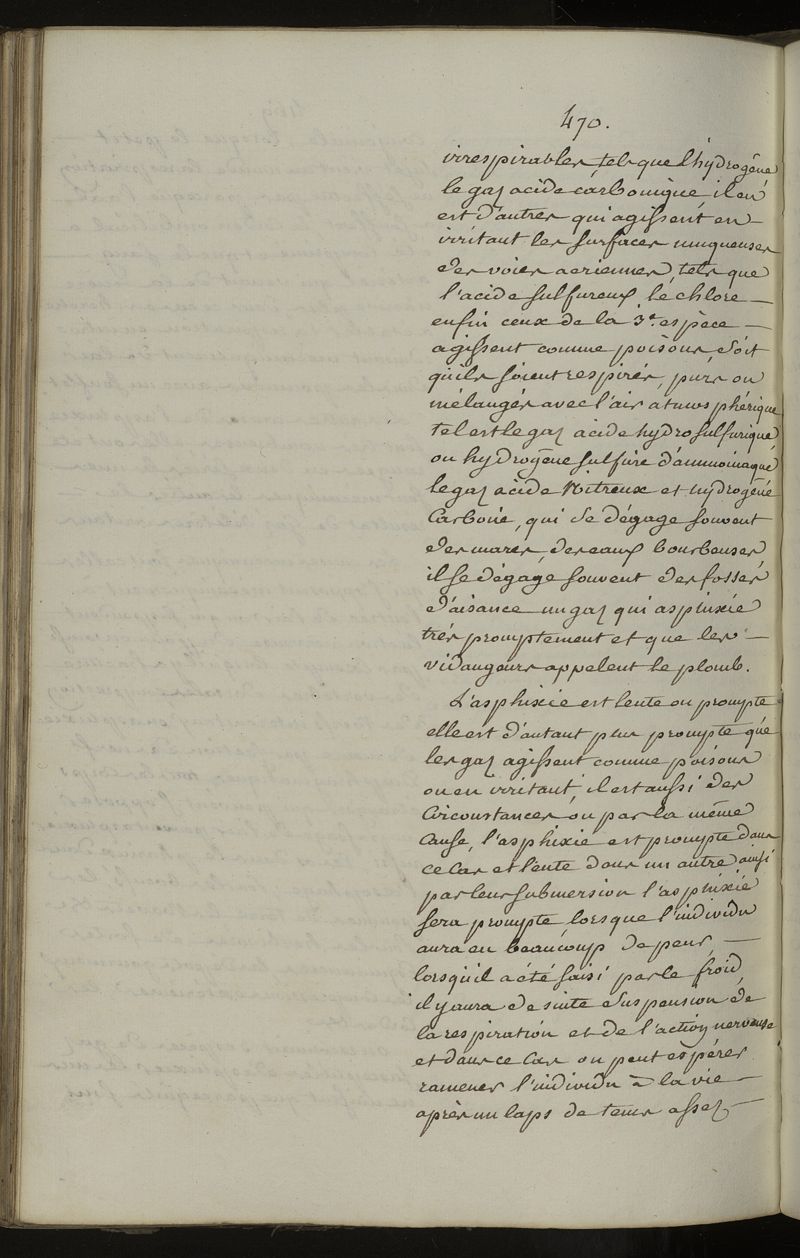 470.
irrespirables, tels que l'hydrogêne
le gaz acide carbonique, il en
est d'autres qui agissent en
irritant les surfaces muqueuses
des voies aeriennes, tels que
l'acide sulfureux, le chlore —
enfin ceux de la 3e. espèce —
agissent comme poisons soit
qu'ils soient respirés, purs ou
mélangés avec l'air atmosphérique
tel est le gaz acide hydrosulfurique
ou hydrogêne sulfuré d'ammoniaque
le gaz acide Nitreux et hydrogéné
Carboné, qui se dégage souvent
des mares, des eaux bourbeuses
il se dégage souvent des fosses
d'aisance un gaz qui asphixie
très promptement et que les —
vidangeurs appelent le plomb.
L'asphixie est lente ou prompte
elle est d'autant plus prompte que
les gaz agissent comme poisons
ou en irritant, il est aussi des
Circonstances ou par la même
Cause, l'asphixie est prompte dans
ce Cas et lente dans un autre ainsi
par leur submersion l'asphixie
sera prompte lorsque l'individu
aura eu beaucoup de peur, —
lorsqu'il a été saisi par le froid,
il y aura de suite suspension de
la respiration et de l'action nerveuse
et dans ce Cas on peut espérer
ramener l'individu à la vie —
après un laps de tems assez —